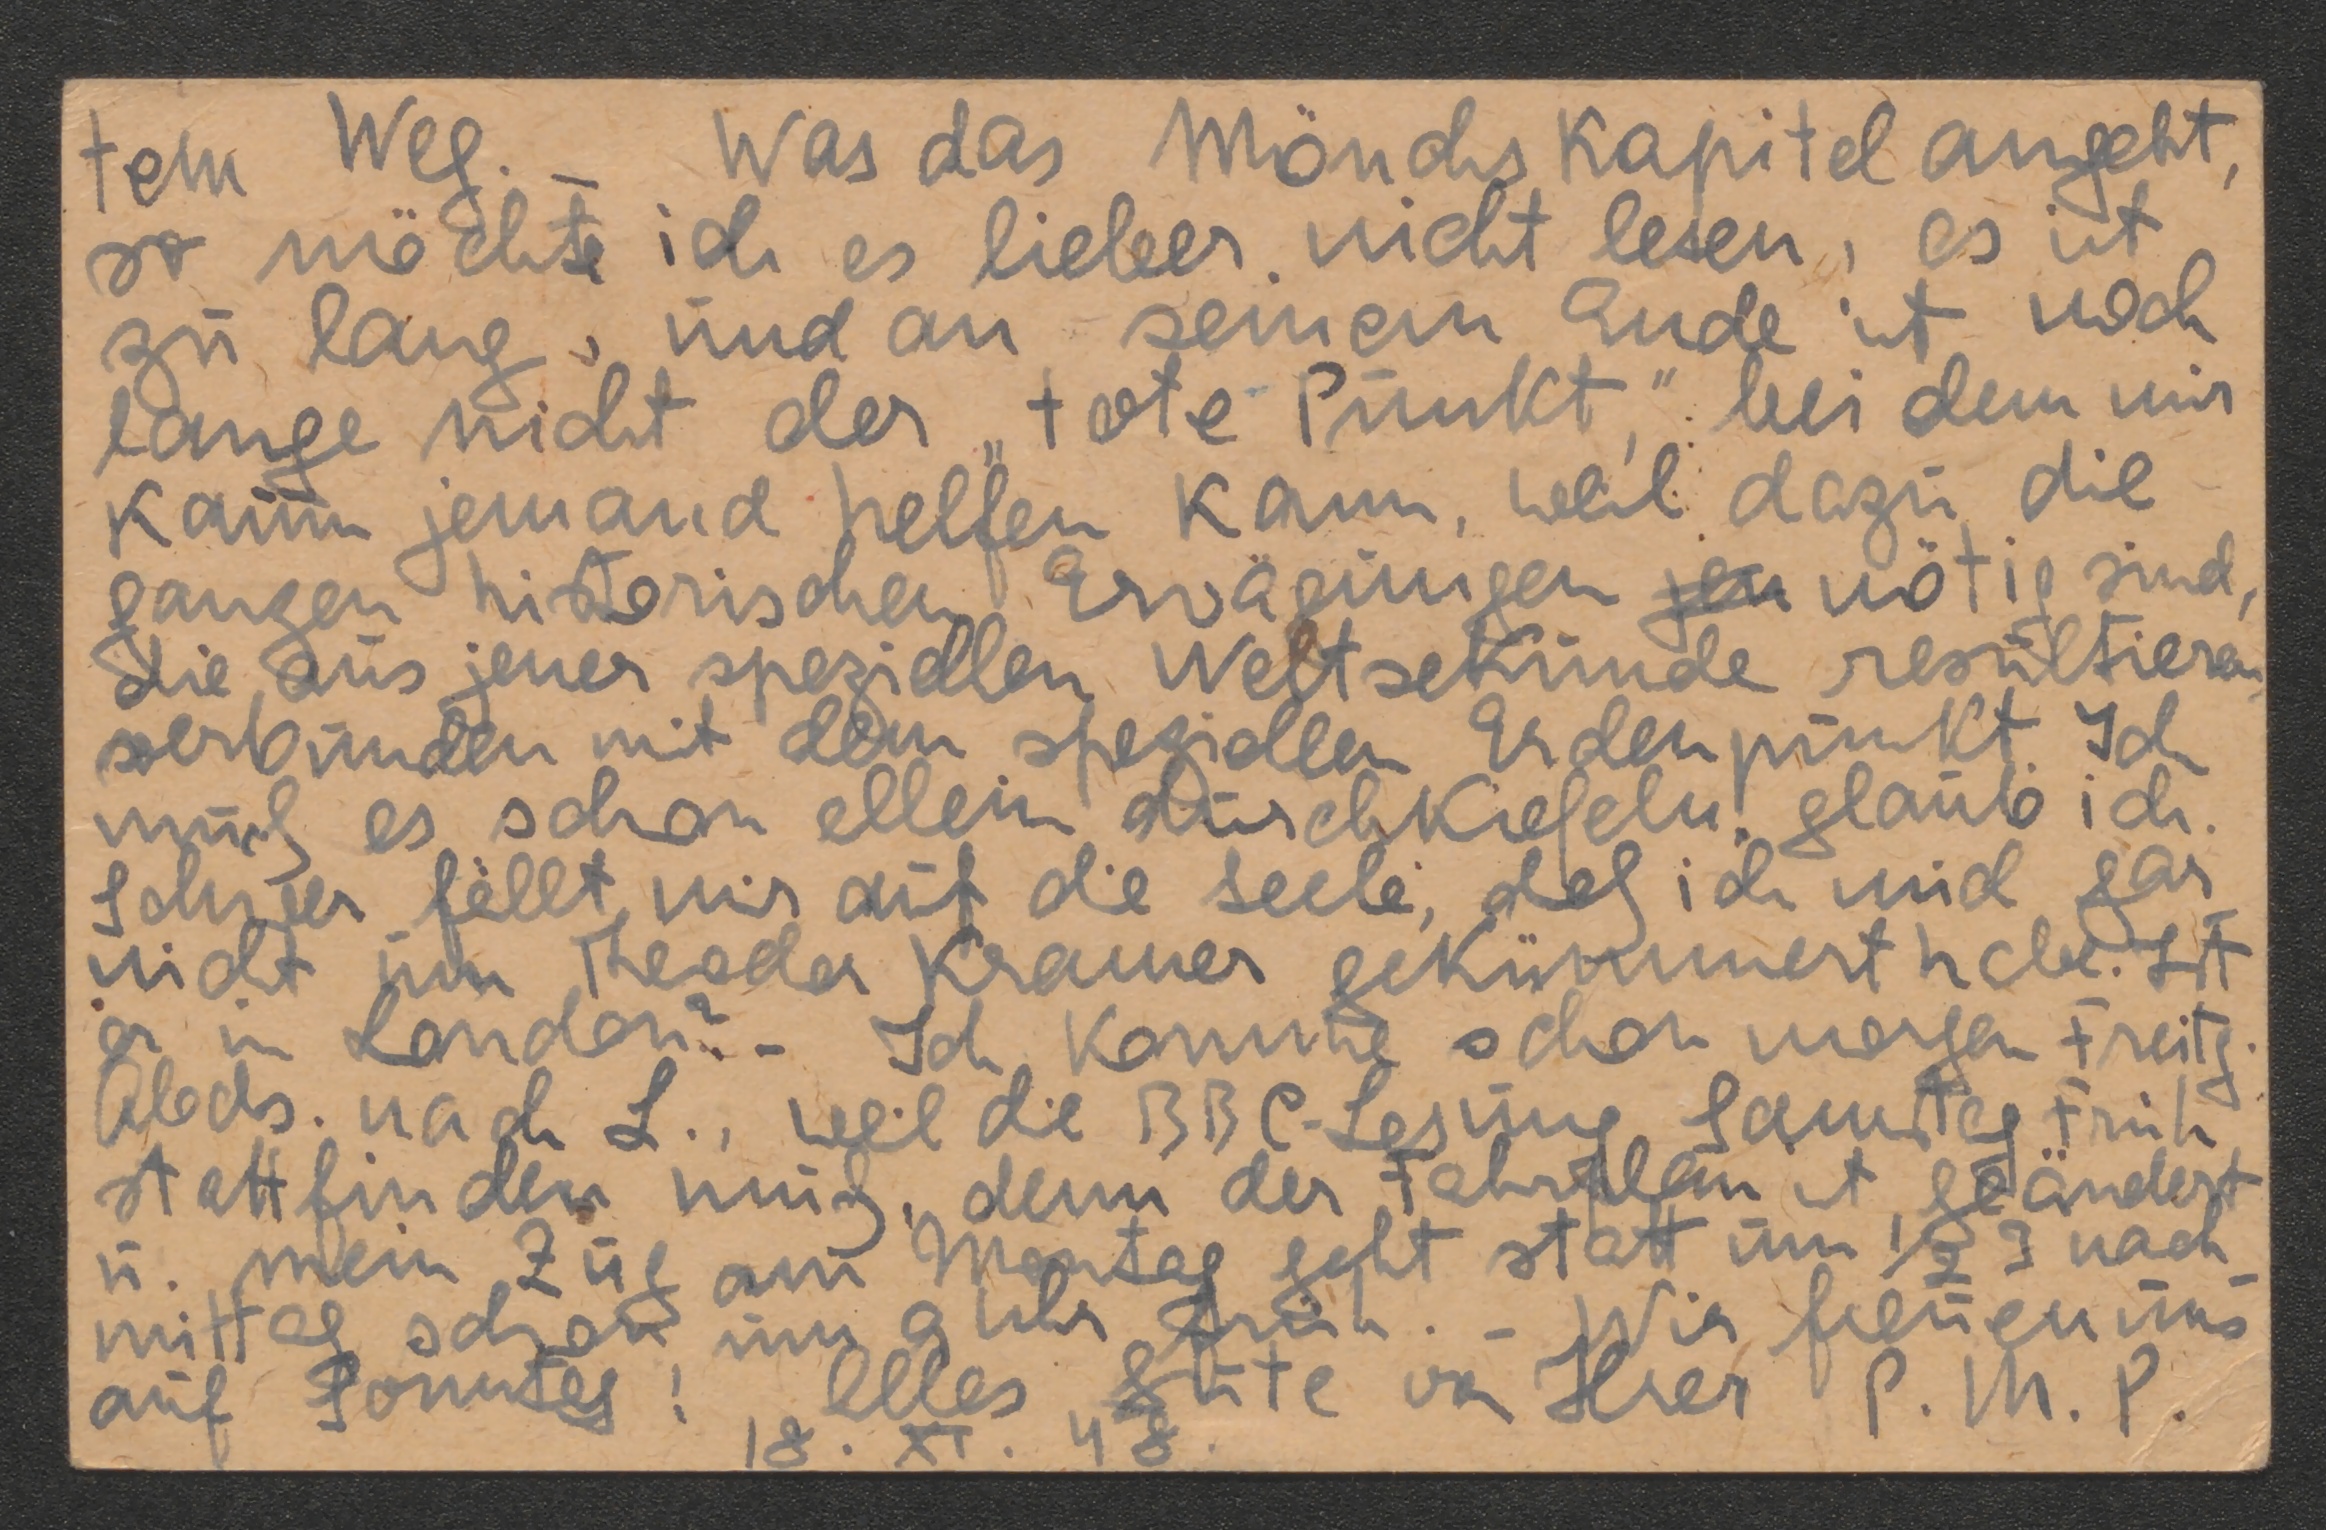 tem Weg. – Was das Mönchskapitel angeht,
so möchte ich es lieber nicht lesen, es ist
zu lang, und an seinem Ende ist noch
lange nicht der „tote Punkt," bei dem mir
kaum jemand helfen kann, weil dazu die
ganzen historischen Erwägungen jen nötig sind,
die aus jener speziellen Weltsekunde resultieren,
verbunden mit dem speziellen Erdenpunkt. Ich
muß es schon allein durchkiefeln, glaub ich.
Schwer fällt mir auf die Seele, daß ich mich gar
nicht um Theodor Kramer gekümmert habe. Ist
er in London? – Ich komme schon morgen Freitg.
Abds. nach L., weil die BBC-Lesung Samstag Früh
stattfinden muß, denn der Fahrplan ist geändert
u. mein Zug am Montag geht statt um 1/2 3 nach
mittag schon um 9 Uhr früh. – Wir freuen uns
auf Sonntag! Alles Gute von Ihrer P. M. P.
18. XI. 48.